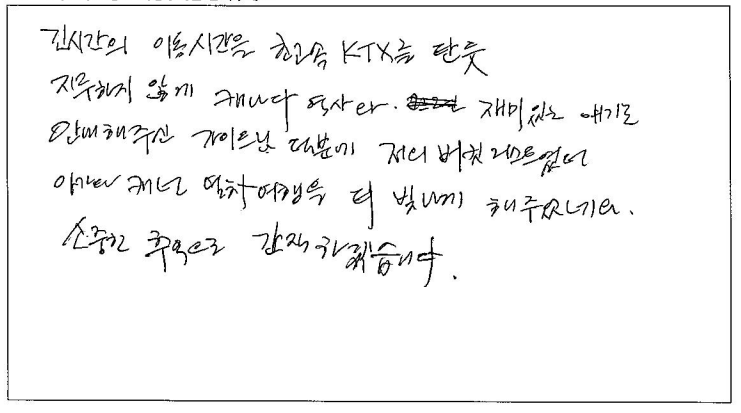 긴시간의 이동시간을 초고속 KTX를 탄듯
지루하지 않게 캐나다 역사와 재미있는 얘기로
안내해주신 가이드님 덕분에 저의 버킷리스트였던
아가와 캐년 열차여행을 더 빛나게 해주었네요.
소중한 추억으로 간직하겠습니다.